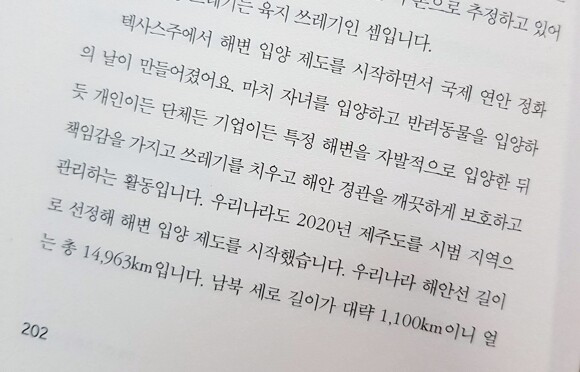 쓰레기는 육지 쓰레기인 셈입니다. 으로 추정하고 있어
텍사스주에서 해변 입양 제도를 시작하면서 국제 연안 정화
의 날이 만들어졌어요. 마치 자녀를 입양하고 반려동물을 입양하
듯 개인이든 단체든 기업이든 특정 해변을 자발적으로 입양한 뒤
책임감을 가지고 쓰레기를 치우고 해안 경관을 깨끗하게 보호하고
관리하는 활동입니다. 우리나라도 2020년 제주도를 시범 지역으
로 선정해 해변 입양 제도를 시작했습니다. 우리나라 해안선 길이
는 총 14,963km입니다. 남북 세로 길이가 대략 1,100km이니 얼
202